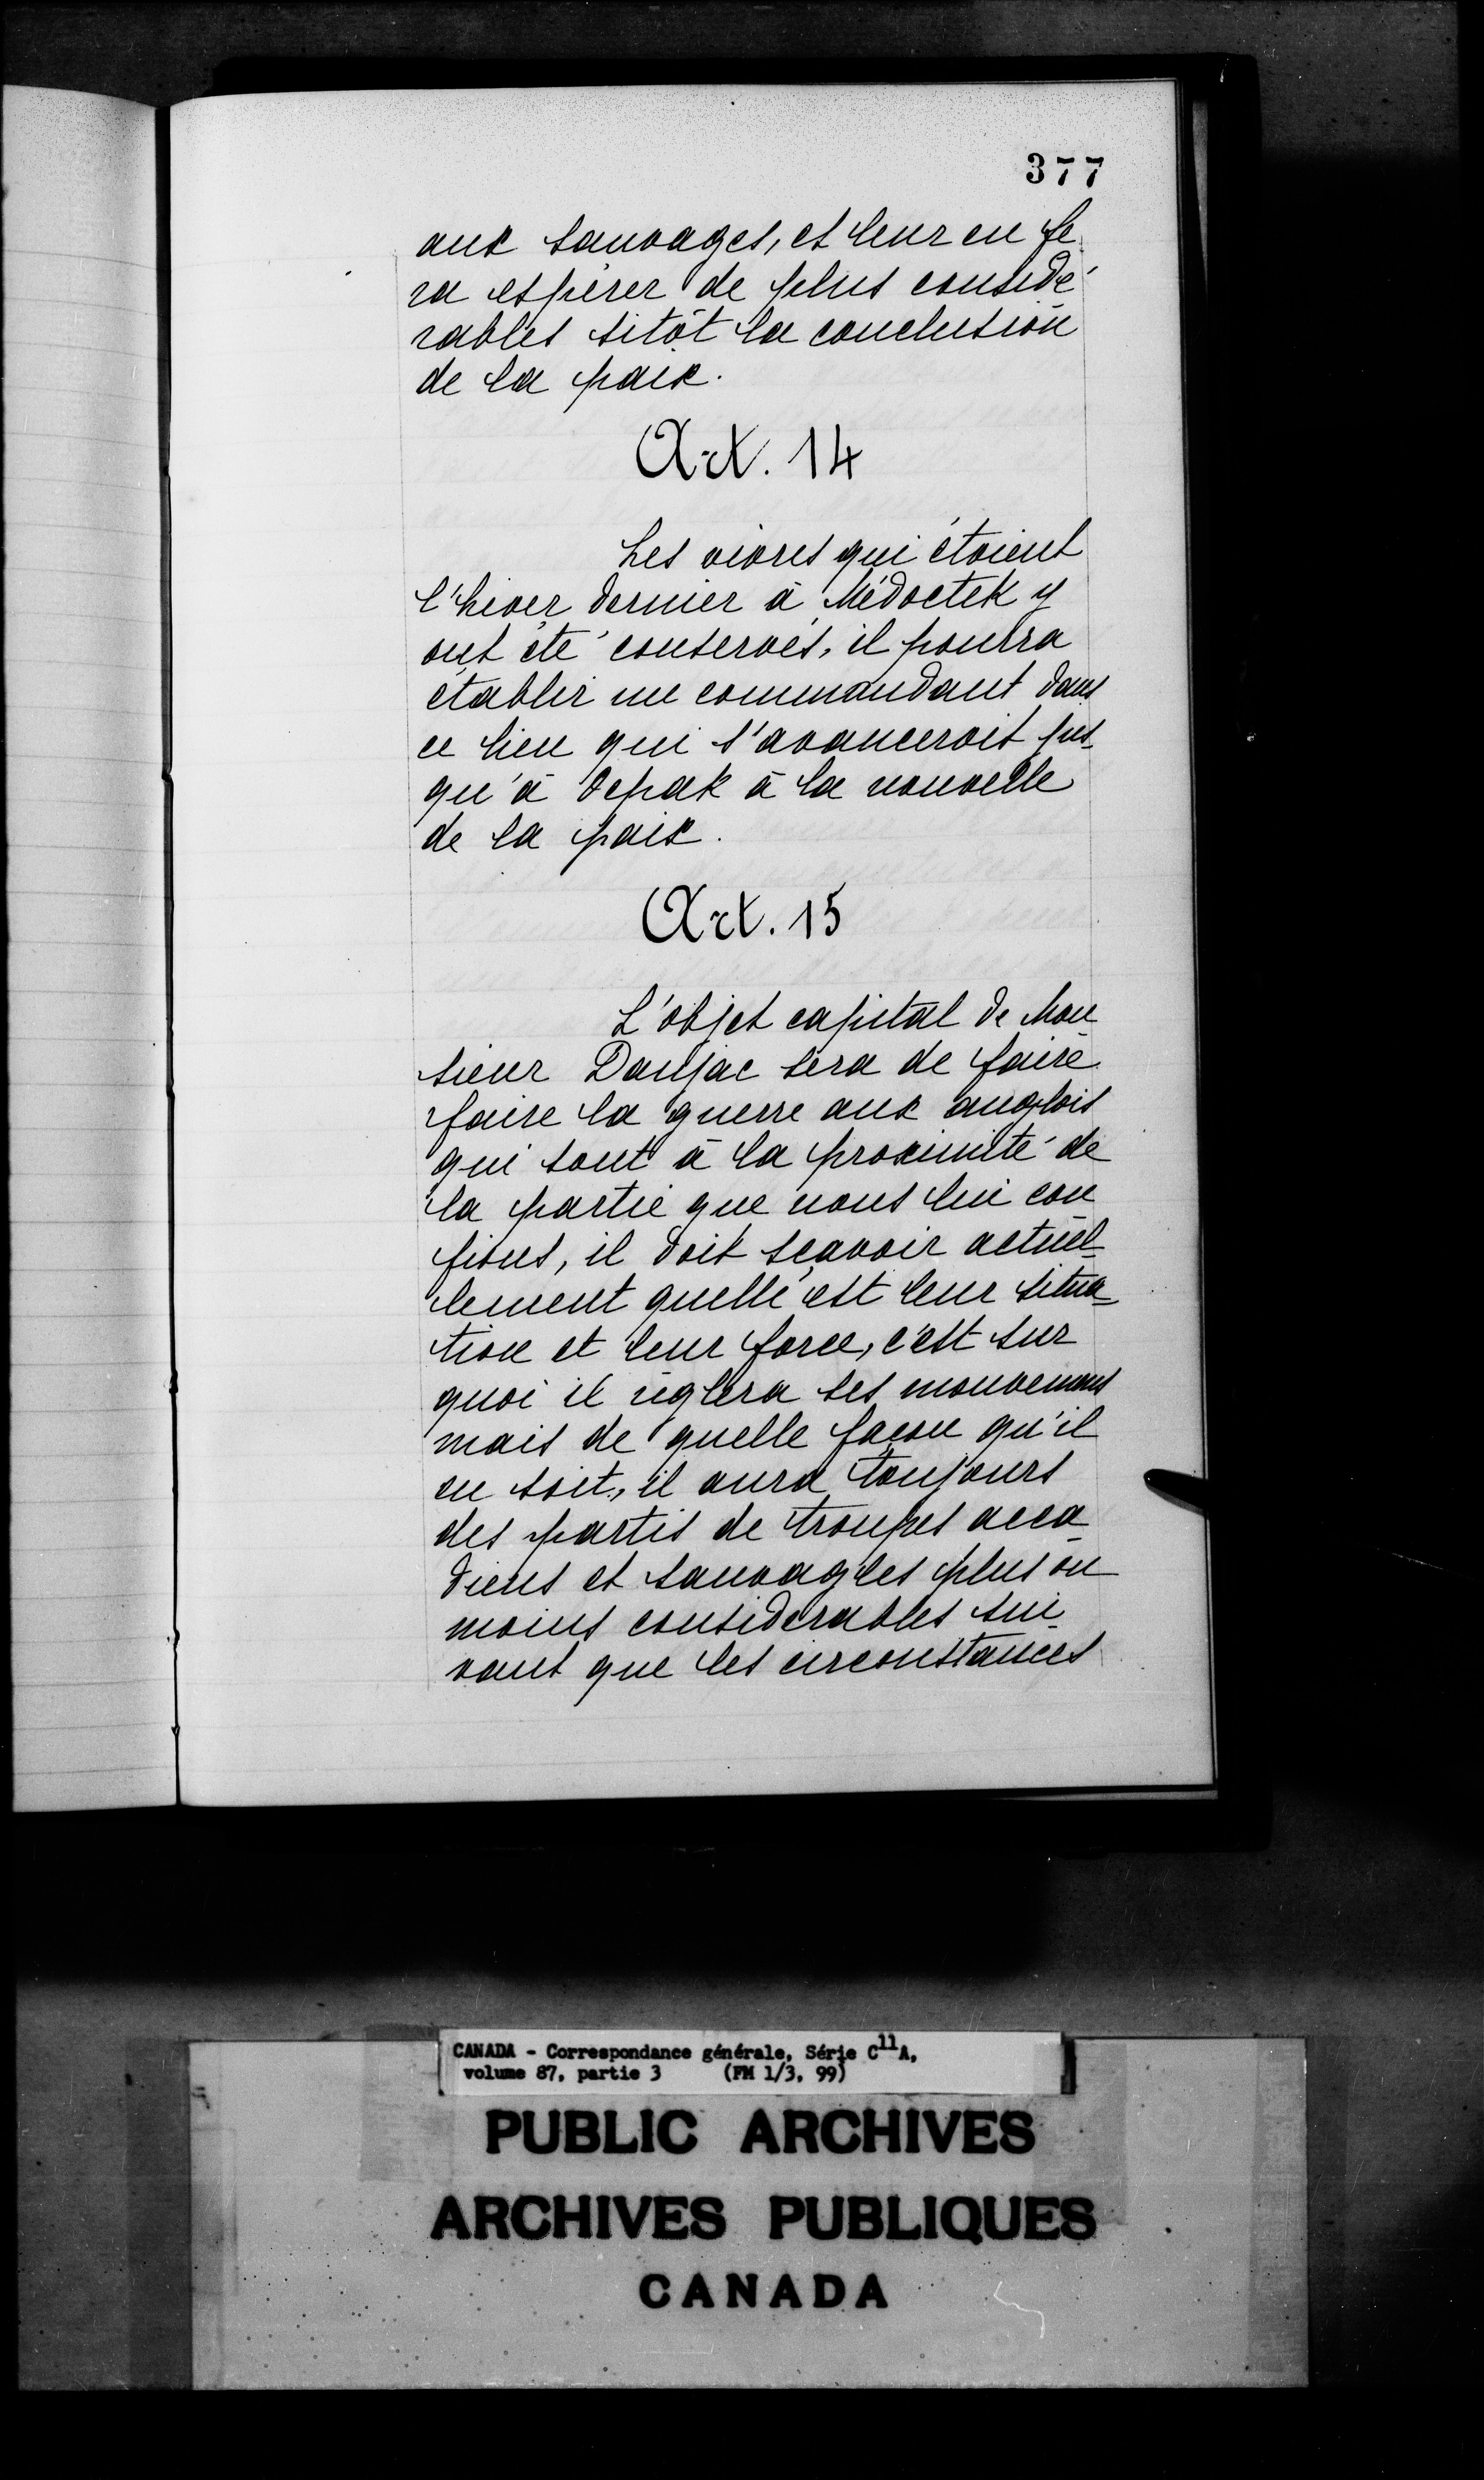 377
aux sauvages, et leur en fe
ra espérer de plus considé
rables sitôt la conclusion
de la paix.
Art. 14
Les vivres qui étoient
l'hiver dernier à Médoctek y
ont été conservés, il pourra
établir un commandant dans
ce lieu qui s'avanceroit jus
qu'à Oepak à la nouvelle
de la paix.
Art. 15
L'objet capital de Mon
sieur Danjac sera de faire
faire la guerre aux anglois
qui sont à la proximité de
la partie que nous lui con
fions, il doit sçavoir actuel
lement quelle est leur situa
tion et leur force, c'est sur
quoi il règlera ses mouvemens
mais de quelle façon qu'il
en soit, il aura toujours
des partis de troupes acca
diens et sauvages plus ou
moins considerables sui
vant que les circonstances
CANADA - Correspondance générale, Série C11A,
volume 87, partie 3 (FM 1/3, 99)
PUBLIC ARCHIVES
ARCHIVES PUBLIQUES
CANADA